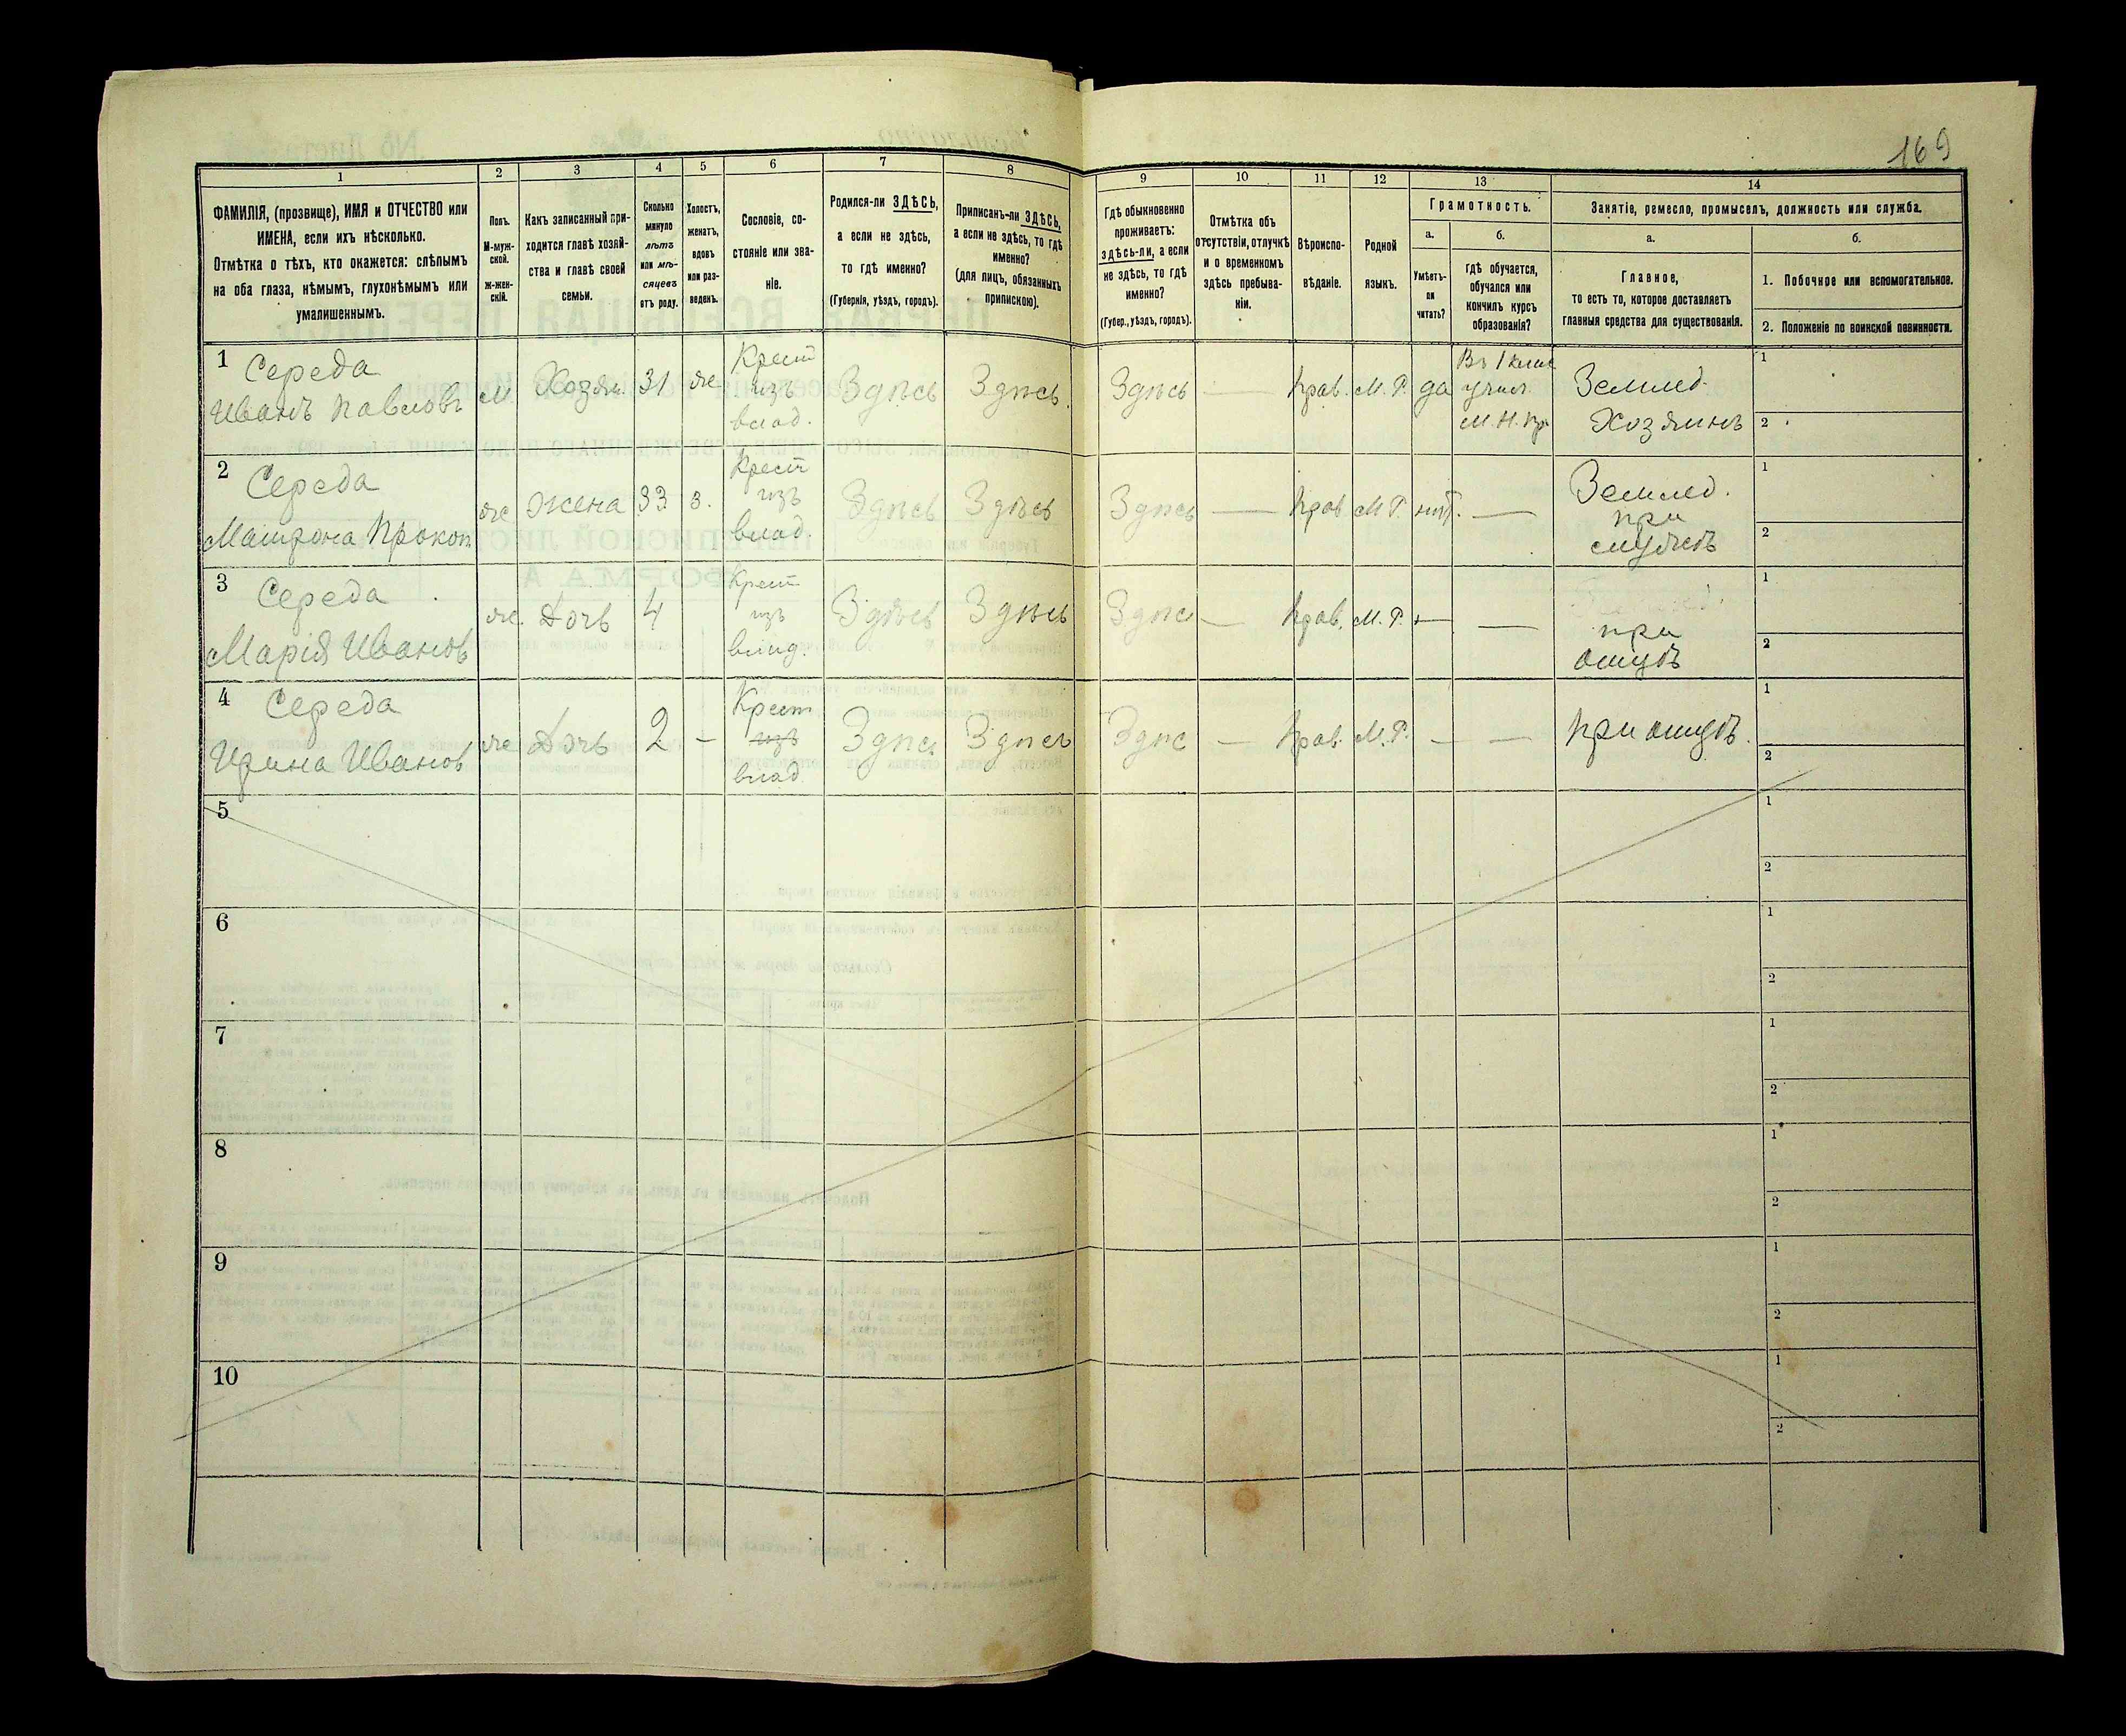 169
1
2
3
4
5
6
7
8
9
10
11
12
13
14
ФАМИЛІЯ, (прозвище), ИМЯ и ОТЧЕСТВО или
ИМЕНА, если ихъ нѣсколько.
Отмѣтка о тѣхъ, кто окажется: слѣпымъ
на оба глаза, нѣмымъ, глухонѣмымъ или
умалишеннымъ.
Полъ.
М-муж-
ской.
Ж-жен-
скій.
Какъ записанный при-
ходится главѣ хозяй-
ства и главѣ своей
семьи.
Сколько
минуло
лѣтъ
или мѣ-
сяцевъ
отъ роду.
Холостъ,
женатъ,
вдовъ
или раз-
веденъ.
Сословіе, со-
стояніе или зва-
ніе.
Родился-ли ЗДѢСЬ,
а если не здѣсь,
то гдѣ именно?
(Губернія, уѣздъ, городъ).
Приписанъ-ли ЗДѢСЬ,
а если не здѣсь, то гдѣ
именно?
(для лицъ, обязанныхъ
припискою).
Гдѣ обыкновенно
проживаетъ:
здѣсь-ли, а если
не здѣсь, то гдѣ
именно?
(Губер., уѣздъ, городъ).
Отмѣтка объ
отсутствіи, отлучкѣ
и о временномъ
здѣсь пребыва-
ніи.
Вѣроиспо-
вѣданіе.
Родной
языкъ.
Грамотность.
а.
Умѣетъ-
ли
читать?
б.
гдѣ обучается,
обучался или
кончилъ курсъ
образованія?
Занятіе, ремесло, промыселъ, должность или служба.
а.
Главное,
то есть то, которое доставляетъ
главныя средства для существованія.
б.
1. Побочное или вспомогательное.
2. Положеніе по воинской повинности.
1 Середа
Иванъ Павловъ
м
Хозяи.
31
же
Крест
изъ
влад.
Здѣсь
Здѣсь.
Здѣсь
—
Прав.
М. Р.
да
Въ 1 клас
учил.
М. Н. Пр.
Землед.
Хозяинъ
1
2
2 Середа
Матрона Прокоп.
же
Жена
33
з.
Крест
изъ
влад.
Здѣсь
Здѣсь
Здѣсь
—
Прав
М. Р.
нѣт.
—
Землед.
при
мужѣ
1
2
3 Середа
Марія Иванов
же.
Дочь
4
Крест
изъ
влад.
Здѣсь
Здѣсь
Здѣсь
—
Прав.
М. Р.
—
—
при
отцѣ
1
2
4 Середа
Ирина Иванов
же
Дочь
2
—
Крест
изъ
влад
Здѣсь
Здѣсь
Здѣс
—
Прав.
М. Р.
—
—
при отцѣ.
1
2
5
1
2
6
1
2
7
1
2
8
1
2
9
1
2
10
1
2